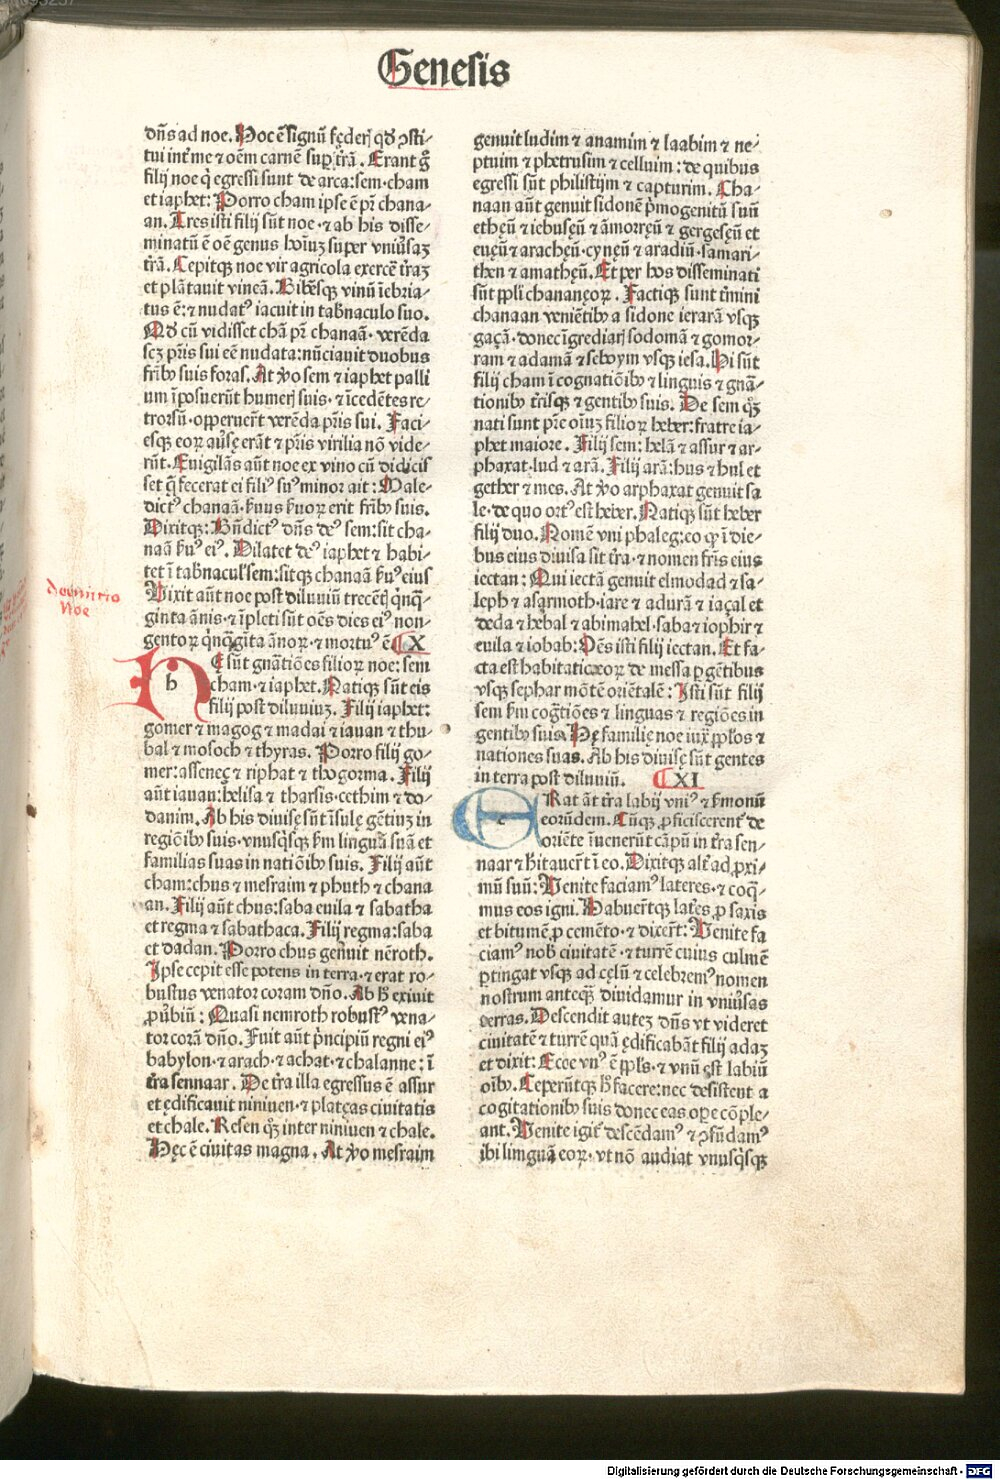 Genesis
dn̄s ad noe. Hoc ē signū fęderꝭ qđ ꝯsti-
tui int̄ me ⁊ oēm carnē suꝑ t̄rā. Erant g̊
filij noe q̇ egressi sunt de arca: sem· cham
et iaphet: Porro cham ipse ē pr̄ chana-
an. Tres isti filij sūt noe· ⁊ ab his disse-
minatū ē oē genus hoīuꝫ super vniūsaꝫ
t̄rā. Cepitqꝫ noe vir agricola exercē t̄raꝫ
et plātauit vineā. Bibēsqꝫ vinū īebria-
tus ē: ⁊ nudatꝰ iacuit in tab̄naculo suo.
Qđ cū vidisset chā pr̄ chanaā· verēda
scꝫ pr̄is sui eē nudata: nūciauit duobus
fr̄ibꝫ suis foras. At ꝟo sem ⁊ iaphet palli
um īposuerūt humerꝭ suis· ⁊ īcedētes re-
trorsū· opperuer̄t verēda pr̄is sui. Faci-
esqꝫ eoꝝ aūse erāt ⁊ pr̄is virilia nō vide-
rūt. Euigilās aūt noe ex vino cū didicis
set q̄ fecerat ei filiꝰ suꝰ minor ait: Male-
dictꝰ chanaā· ẜuus ẜuoꝝ erit fr̄ibꝫ suis.
Dixitqꝫ: Bn̄dictꝰ dn̄s deꝰ sem: sit cha-
naā ẜuꝰ eiꝰ. Dilatet deꝰ iaphet ⁊ habi-
tet ī tab̄nacul̓ sem: sitqꝫ chanaā ẜuꝰ eius
Vixit aūt noe post diluuiū trecētꝭ q̇nq̄-
ginta ānis· ⁊ īpleti sūt oēs dies eiꝰ non-
gentoꝝ q̇nq̄gīta ānoꝝ· ⁊ mortuꝰ ē. X
noe
h
Ę sūt gn̄atiōes filioꝝ noe: sem
cham· ⁊ iaphet. Natiqꝫ sūt eis
filij post diluuiuꝫ. Filij iaphet:
gomer ⁊ magog ⁊ madai ⁊ iauan ⁊ thu-
bal ⁊ mosoch ⁊ thyras. Porro filij go-
mer: asseneç ⁊ riphat ⁊ thogorma. Filij
aūt iauan: helisa ⁊ tharsis· cethim ⁊ do-
danim. Ab his diuisę sūt īsulę gētiuꝫ in
regiōibꝫ suis· vnusq̇sqꝫ ẜm linguā suā et
familias suas in natiōibꝫ suis. Filij aūt
cham: chus ⁊ mesraim ⁊ phuth ⁊ chana
an. Filij aūt chus: saba euila ⁊ sabatha
et regma ⁊ sabathaca. Filij regma: saba
et dadan. Porro chus genuit nēroth.
Ipse cepit esse potens in terra· ⁊ erat ro-
bustus venator coram dn̄o. Ab h̄ exiuit
ꝓūbiū: Quasi nemroth robustꝰ vena-
tor corā dn̄o. Fuit aūt pͥncipiū regni eiꝰ
babylon· ⁊ arach· ⁊ achat· ⁊ chalanne: ī
t̄ra sennaar. De t̄ra illa egressus ē assur
et ędificauit niniuen· ⁊ plateas ciuitatis
et chale. Resen qꝫ inter niniuen ⁊ chale.
Hęc ē ciuitas magna. At ꝟo mesraim
genuit ludim ⁊ anamim ⁊ laabim ⁊ ne-
ptuim ⁊ phetrusim ⁊ celluim: de quibus
egressi sūt philistijm ⁊ capturim. Cha-
naan aūt genuit sidonē pͥmogenitū suū
ethęū ⁊ iebusęū ⁊ āmorręū ⁊ gergesęū et
euęū ⁊ arachęū· cynęū ⁊ aradiū· samari-
then ⁊ amathęū. Et per hos disseminati
sūt ppl̄i chananęoꝝ. Factiqꝫ sunt t̄mini
chanaan veniētibꝫ a sidone ierarā vsqꝫ
gaçā· donec īgrediarꝭ sodomā ⁊ gomor-
ram ⁊ adamā ⁊ seboym vsqꝫ lesa. Hi sūt
filij cham ī cognatiōibꝫ ⁊ linguis ⁊ gn̄a-
tionibꝫ t̄risqꝫ ⁊ gentibꝫ suis. De sem qꝫ
nati sunt pr̄e oīuꝫ filioꝝ heber: fratre ia-
phet maiore. Filij sem: helā ⁊ assur ⁊ ar-
phaxat· lud ⁊ arā. Filij arā: hus ⁊ hul et
gether ⁊ mes. At ꝟo arphaxat genuit sa
le· de quo ortꝰ est heber. Natiqꝫ sūt heber
filij duo. Nomē vni phaleg: eo ꝙ ī die-
bus eius diuisa sit t̄ra· ⁊ nomen fr̄is eius
iectan: Qui iectā genuit elmodad ⁊ sa-
leph ⁊ asarmoth· iare ⁊ adurā ⁊ iaçal et
deda ⁊ hebal ⁊ abimahel· saba ⁊ iophir ⁊
euila ⁊ iobab: Oēs isti filij iectan. Et fa-
cta est habitatio eoꝝ de messa ꝑgētibus
vsqꝫ sephar mōtē oriētalē: Isti sūt filij
sem ẜm cog̅tiōes ⁊ linguas ⁊ regiōes in
gentibꝫ suis. Hę familię noe iuxͣ ppl̓os ⁊
nationes suas. Ab his diuisę sūt gentes
in terra post diluuiū. XI
e
Rat āt t̄ra labij vniꝰ ⁊ ẜmonū
eorūdem. Cūqꝫ ꝓficiscerentͬ de
oriēte īuenerūt cāpū in t̄ra sen-
naar ⁊ h̄itauer̄t ī eo. Dixitqꝫ alt̄ ad ꝓxi-
mū suū: Venite faciamꝰ lateres· ⁊ coq̄-
mus eos igni. Habuer̄tqꝫ lat̄es ꝓ saxis
et bitumē ꝓ cemēto· ⁊ dixer̄t: Venite fa
ciamꝰ nob̄ ciuitatē· ⁊ turrē cuius culmē
ꝑtingat vsqꝫ ad cęlū ⁊ celebremꝰ nomen
nostrum anteq̄ƺ diuidamur in vniūsas
terras. Descendit auteꝫ dn̄s vt videret
ciuitatē ⁊ turrē quā ędificabāt filij adaꝫ
et dixit: Ecce vnꝰ ē ppl̓s· ⁊ vnū est labiū
oībꝫ. Ceperūtqꝫ h̄ facere: nec desistent a
cogitationibꝫ suis donec eas oꝑe cōple-
ant. Venite igitͬ descēdamꝰ ⁊ ꝯfūdamꝰ
ibi linguā eoꝝ· vt nō audiat vnusq̇sqꝫ
Digitalisierung gefördert durch die Deutsche Forschungsgemeinschaft - DFG